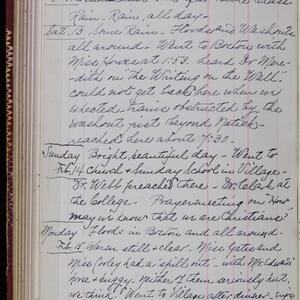 Rain - Rain, all day -
Sat. 13 Some Rain - Floods and Washouts
all around. Went to Boston with
Miss Howes at 1:53. Heard Dr. Mere-
dith on "The Writing on the Wall"
could not get back here when we
expected, trains obstructed by the
washout just beyond Natick -
reached here about 7:30 -
Sunday Bright, beautiful day - Went to
Feb. 14 Church & Sunday School in Village -
Dr. Webb preached there -
the College. Prayer meeting on "How
may we know that we are Christians?"
Monday Floods in Boston and all around.
Feb. 15 Warm still & clear. Miss Gates and
Miss Cooley had a "spill out" with Mr.
horse & buggy. Neither of them seriously hurt,
we think. Went to Village after dinner.